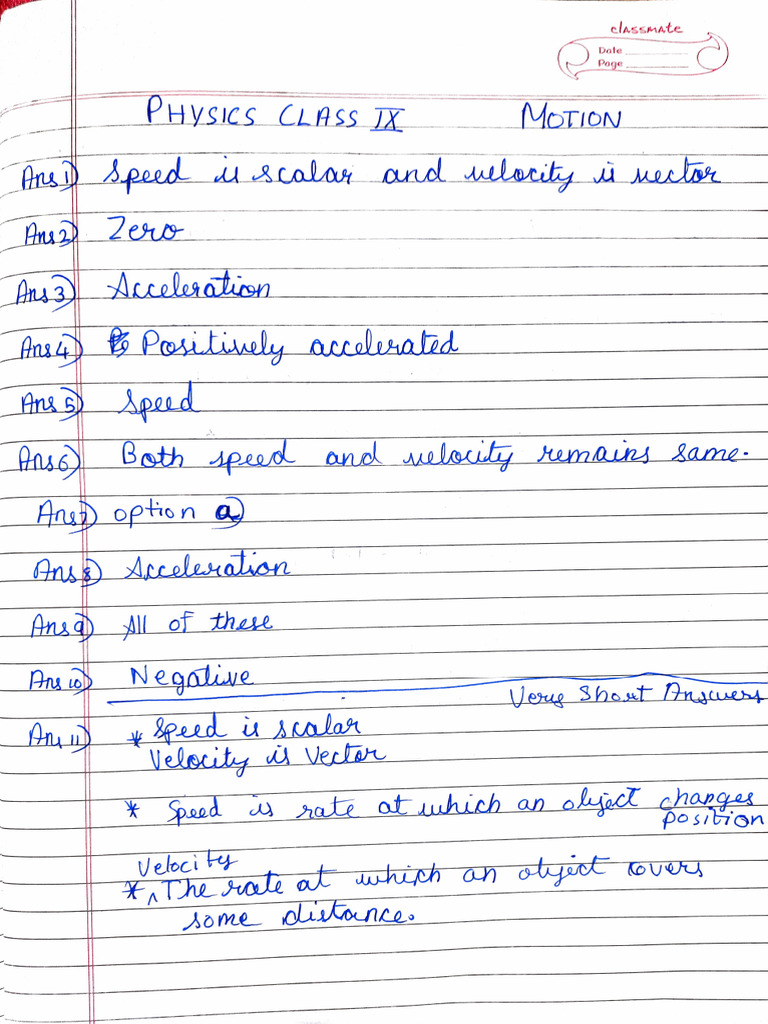 classmate
Date
Page
PHYSICS CLASS IX MOTION
Ans 1) Speed is scalar and velocity is vector
Ans 2) Zero
Ans 3) Acceleration
Ans 4) Positively accelerated
Ans 5) Speed
Ans 6) Both speed and velocity remains same.
Ans 7) option a)
Ans 8) Acceleration
Ans 9) All of these
Ans 10) Negative
Very Short Answers
Ans 11) * Speed is scalar
Velocity is Vector
* Speed is rate at which an object changes
position
Velocity
* ^ The rate at which an object covers
some distance.